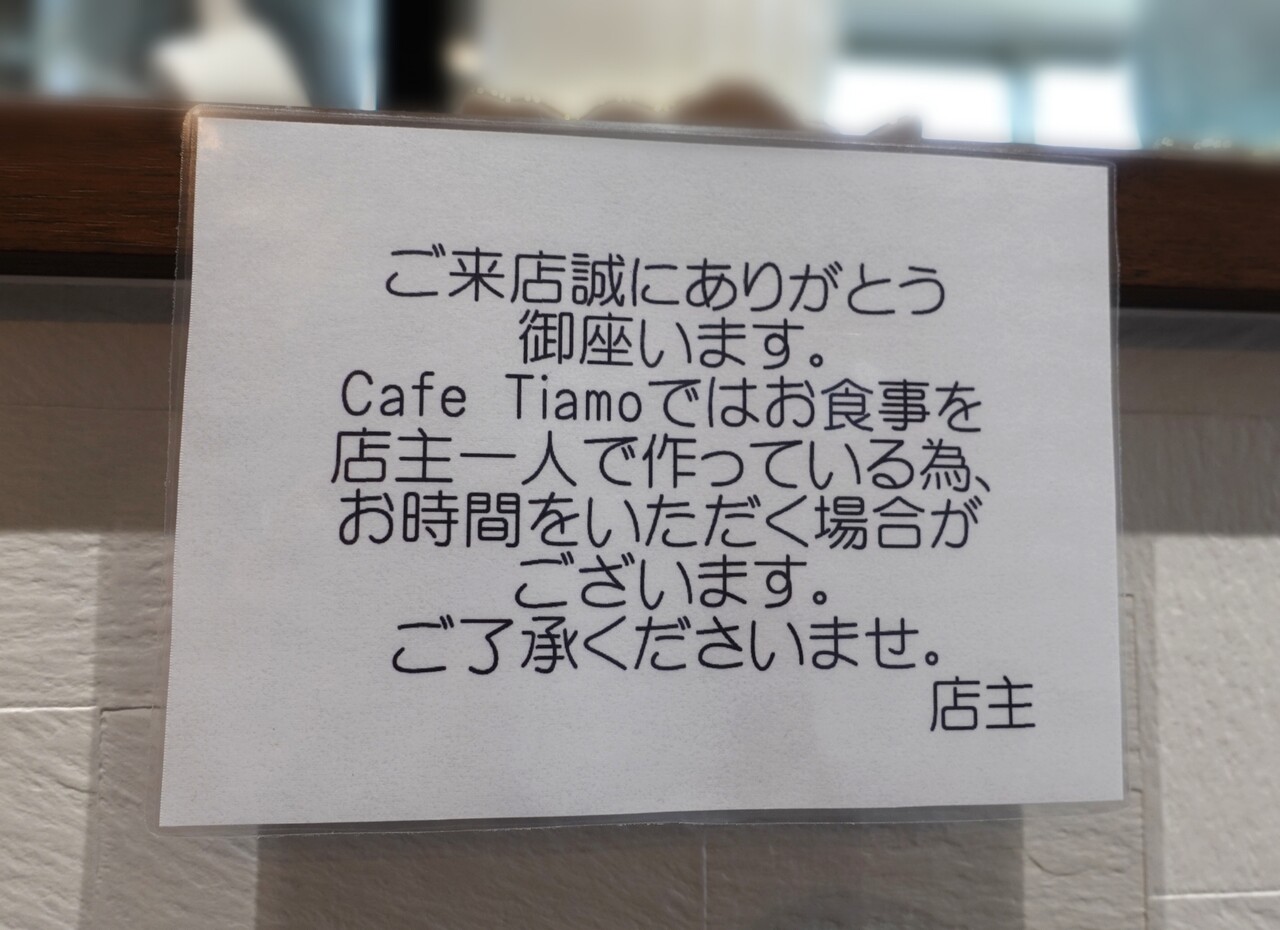 ご来店誠にありがとう
御座います。
Cafe Tiamoではお食事を
店主一人で作っている為、
お時間をいただく場合が
ございます。
ご了承くださいませ。
店主